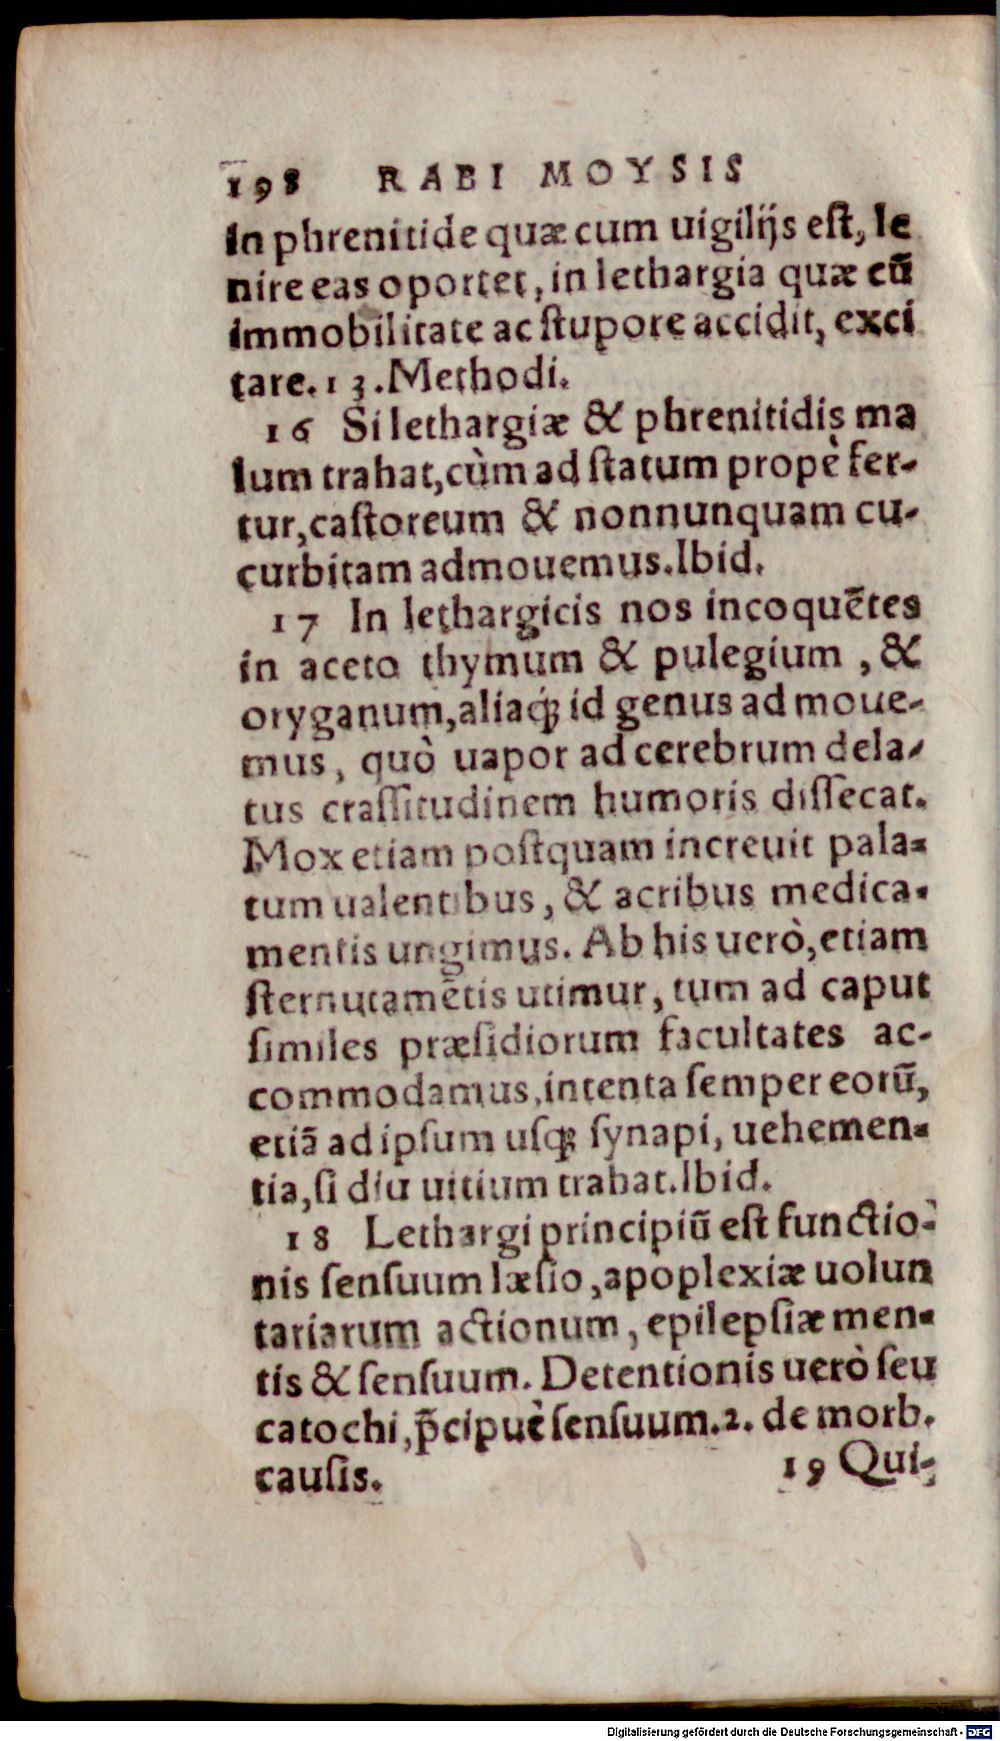 198 RABI MOYSIS
In phrenitide quæ cum uigilijs est, le
nire eas oportet, in lethargia quæ cũ
immobilitate ac stupore accidit, exci
tare. 13. Methodi.
16 Si lethargiæ & phrenitidis ma
lum trahat, cùm ad statum propè fer-
tur, castoreum & nonnunquam cu-
curbitam admouemus. Ibid.
17 In lethargicis nos incoquẽtes
in aceto thymum & pulegium, &
oryganum, aliaq́; id genus ad moue-
mus, quò uapor ad cerebrum dela-
tus crassitudinem humoris dissecat.
Mox etiam postquam increuit pala-
tum ualentibus, & acribus medica-
mentis ungimus. Ab his uerò, etiam
sternutamẽtis utimur, tum ad caput
similes præsidiorum facultates ac-
commodamus, intenta semper eorũ,
etiã ad ipsum usq; synapi, uehemen-
tia, si diu uitium trahat. Ibid.
18 Lethargi principiũ est functio-
nis sensuum læsio, apoplexiæ uolun
tariarum actionum, epilepsiæ men-
tis & sensuum. Detentionis uerò seu
catochi, p̃cipuè sensuum. 2. de morb.
causis.
19 Qui-
Digitalisierung gefördert durch die Deutsche Forschungsgemeinschaft - DFG